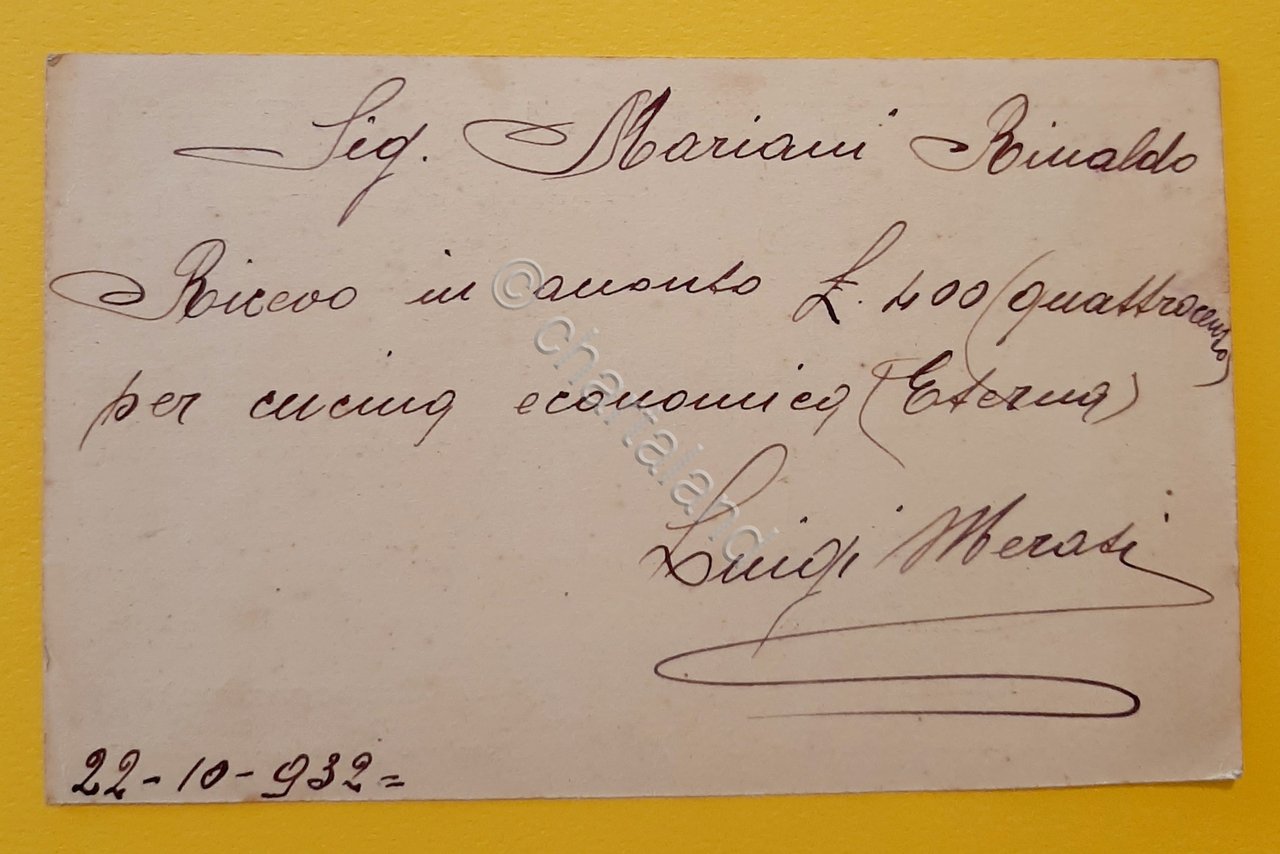 Sig. Mariani Rinaldo
Ricevo in acconto £. 400 (quattrocento)
per cucina economica (Eterna)
Luigi Merati
22-10-932=
© chartaland